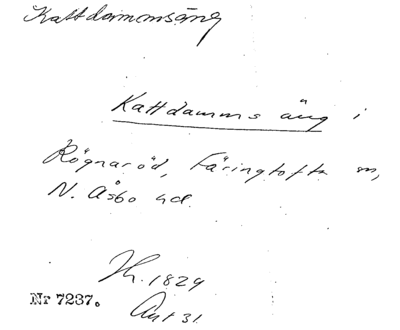 Kattdammsäng
Kattdamms äng i
Rögnaröd, Färingtofta sn,
N. Åsbo hd.
Th. 1829
Nr 7237. Akt 31